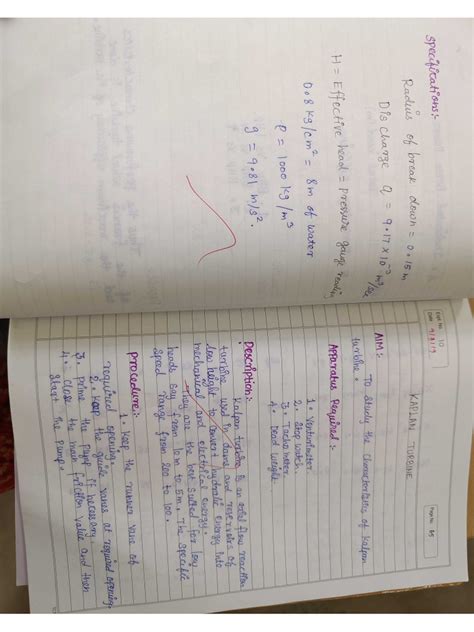 Specifications:-
Radius of break down = 0.15m
Discharge Q = 9.17x10⁻³ m³/sec
H = Effective head = pressure gauge readin
0.8 kg/cm² = 8m of water
ρ = 1000 kg/m³
g = 9.81 m/s².
Expt. No. 10
Date
Page No.
KAPLAN TURBINE
AIM:-
To study the characteristics of kaplan
turbine.
Apparatus Required:-
1. Venturimeter
2. Stop watch.
3. Tachometer
4. Dead weight.
Description:-
Kaplan turbine is an axial flow reaction
turbine used in dams and reservoirs of
low height to convert hydralic energy into
mechanical and electrical energy.
They are the best suited for low
heads say from 10m to 5m. The specific
speed ranges from 200 to 100.
Procedure:-
1. Keep the runner vane of
required opening.
2. Keep the guide vanes at required opening.
3. prime the pump if necessary
4. Close the main friction value and then
start the pump.